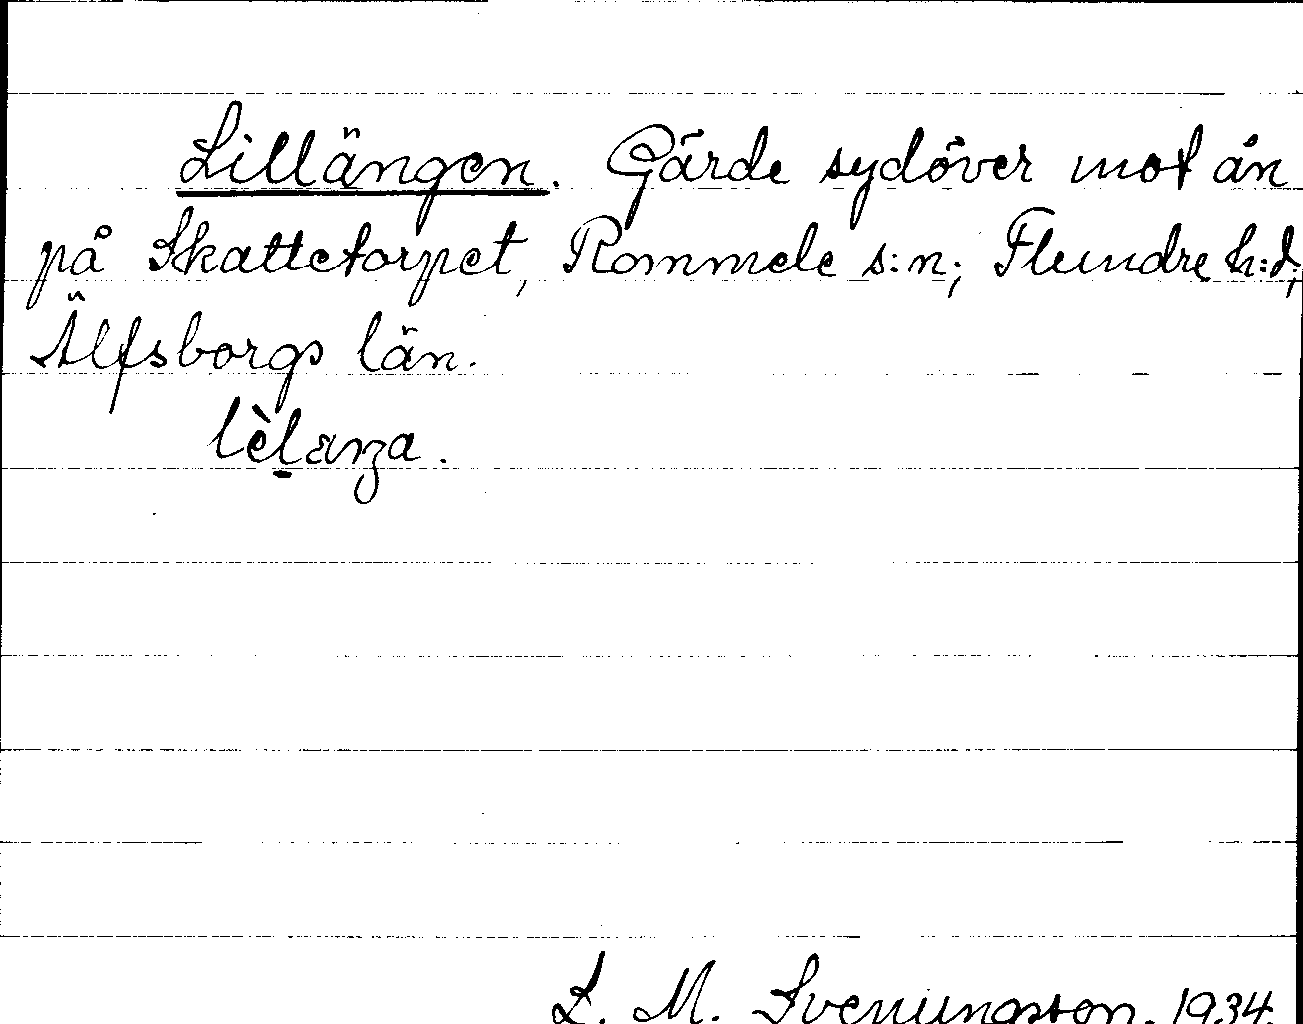 Lillängen. Gärde sydöver mot ån
på Skattetorpet, Rommele s:n; Flundre h:d;
Älfsborgs län.
lèl̠æŋa.
L. M. Svenungsson. 1934.